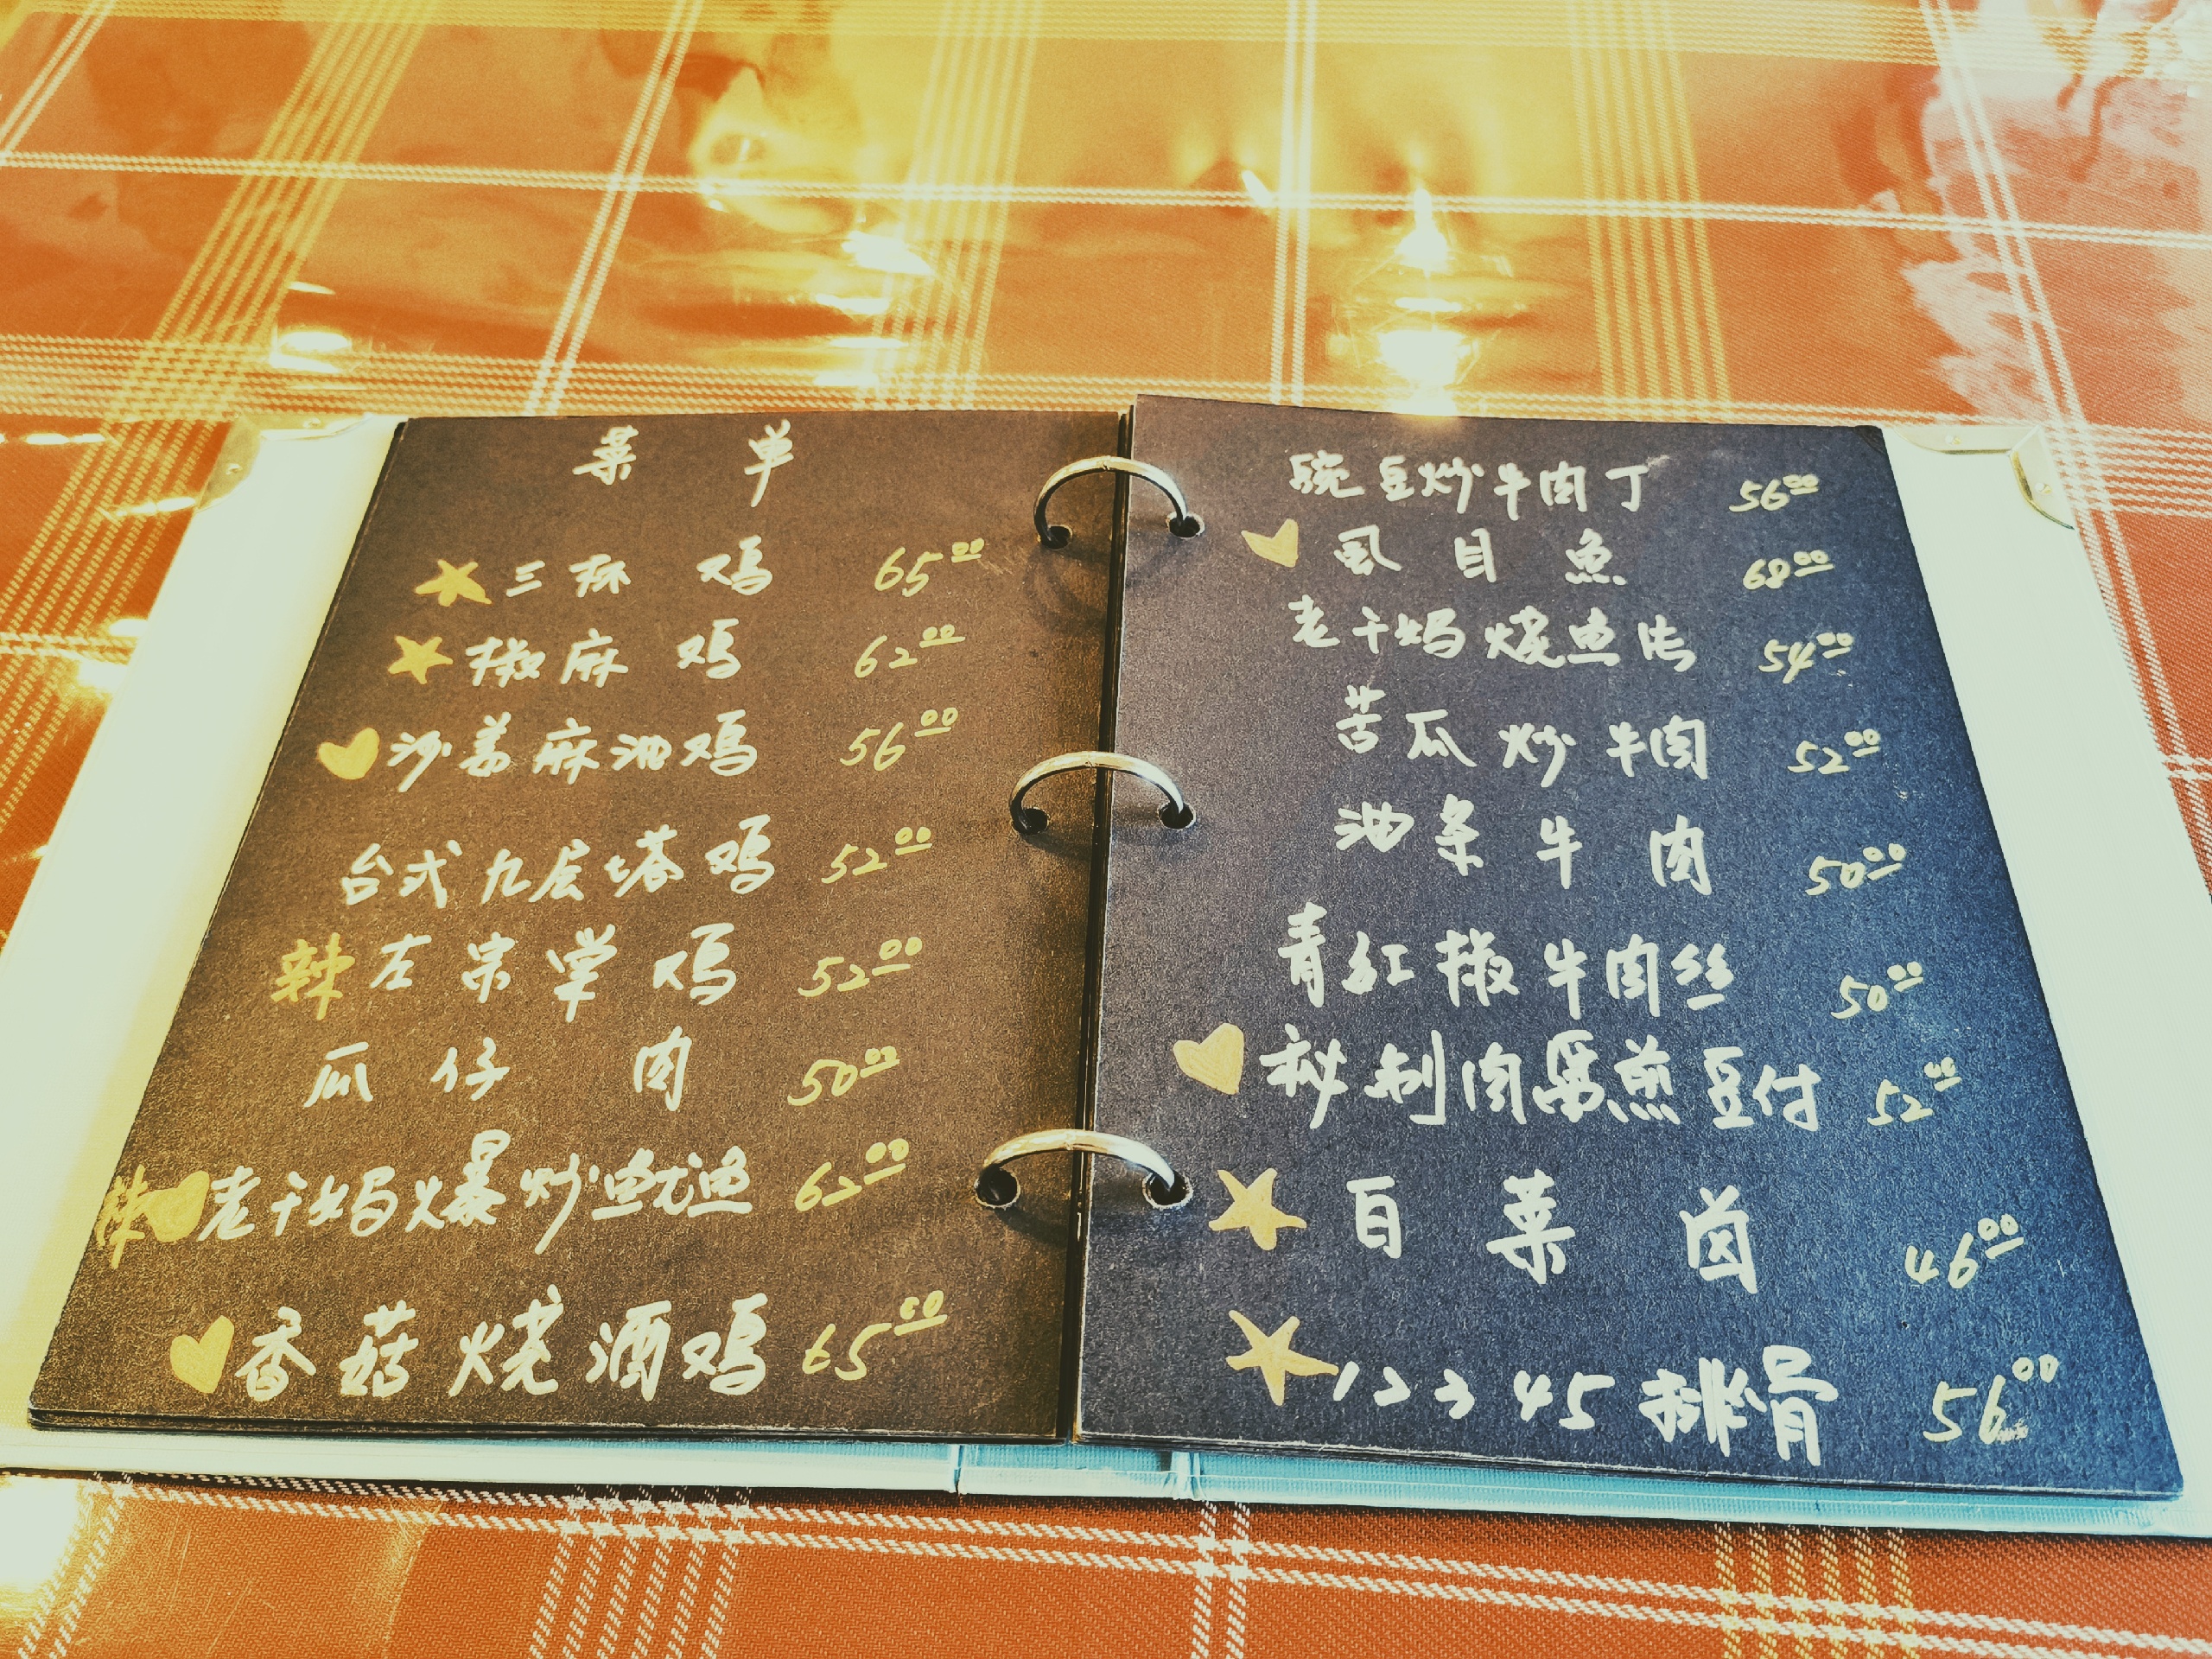 菜单
三杯鸡 65.00
椒麻鸡 62.00
沙姜麻油鸡 56.00
台式九层塔鸡 52.00
辣 左宗堂鸡 52.00
瓜仔肉 50.00
辣 老干妈爆炒鱿鱼 62.00
香菇烧酒鸡 65.00
豌豆炒牛肉丁 56.00
虱目鱼 68.00
老干妈烧鱼片 54.00
苦瓜炒牛肉 52.00
油条牛肉 50.00
青红椒牛肉丝 50.00
秘制肉酱煎豆付 52.00
白菜卤 46.00
12345排骨 56.00